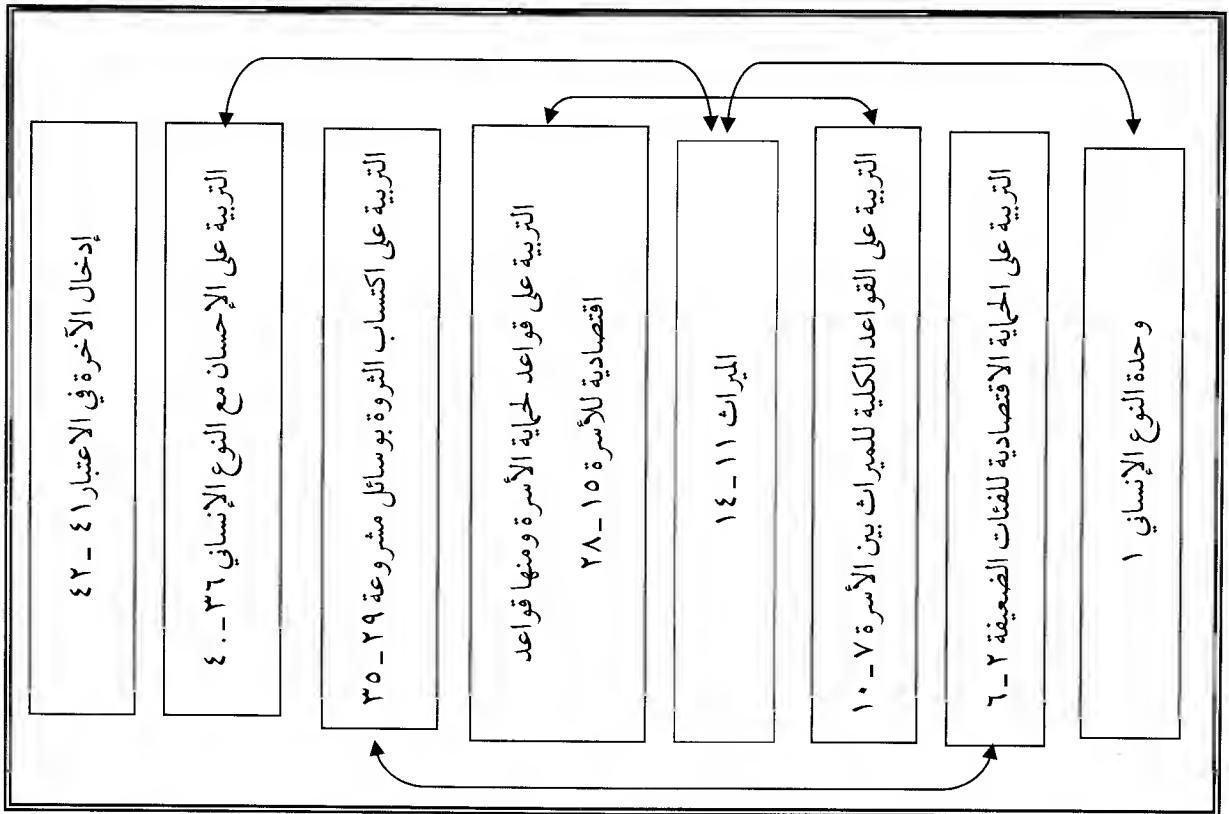 وحدة النوع الإنساني ١
التربية على الحماية الاقتصادية للفئات الضعيفة ٢_٦
التربية على القواعد الكلية للميراث بين الأسرة ٧_١٠
الميراث ١١_١٤
التربية على قواعد لحماية الأسرة ومنها قواعد
اقتصادية للأسرة ١٥_٢٨
التربية على اكتساب الثروة بوسائل مشروعة ٢٩_٣٥
التربية على الإحسان مع النوع الإنساني ٣٦_٤٠
إدخال الآخرة في الاعتبار ٤١_٤٢